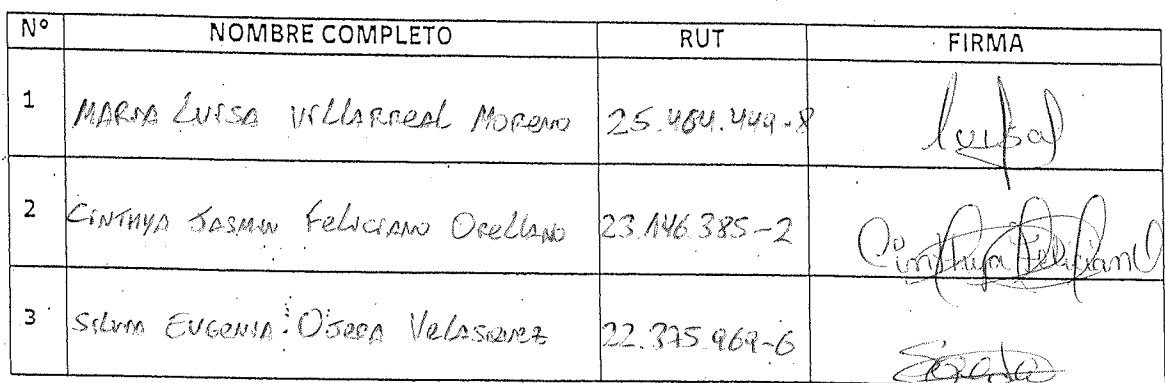 Nº NOMBRE COMPLETO RUT FIRMA
1 MARIA LUISA VILLARREAL MORENO 25.464.449-8 luisa
2 CINTHYA JASMIN FELICIANO ORELLANO 23.146.385-2 Cinthya Feliciano
3 SILVIA EUGENIA OJEDA VELASQUEZ 22.375.969-6